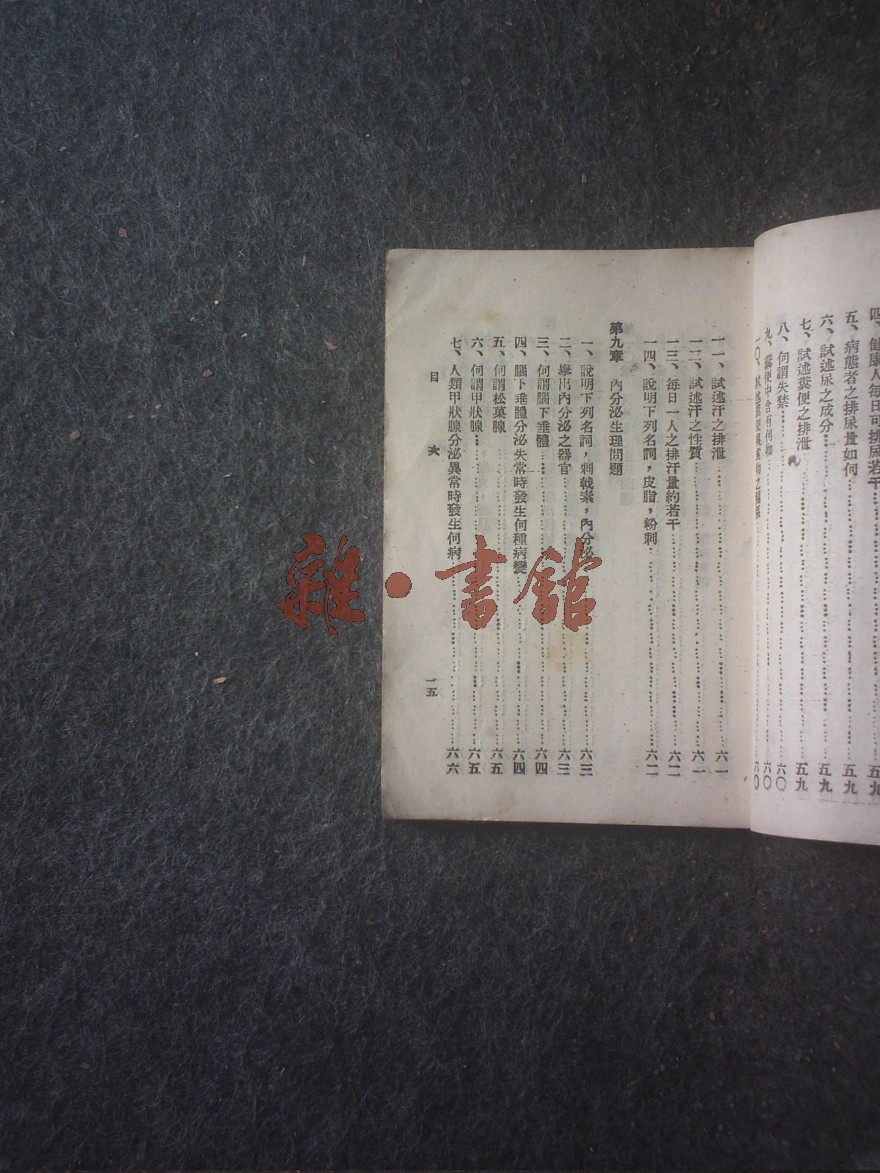 四、健康人每日可排尿若干……五九
五、病態者之排尿量如何……五九
六、試述尿之成分……五九
七、試述糞便之排泄……五九
八、何謂失禁……六〇
九、糞便中含有何物……六〇
一〇、……六〇
一一、試述汗之排泄……六一
一二、試述汗之性質……六一
一三、每日一人之排汗量約若干……六二
一四、說明下列名詞，皮脂，粉刺……六二
第九章　內分泌生理問題
一、說明下列名詞，刺戟素，內分泌……六三
二、舉出內分泌之器官……六三
三、何謂腦下垂體……六四
四、腦下垂體分泌失常時發生何種病變……六四
五、何謂松菓腺……六五
六、何謂甲狀腺……六五
七、人類甲狀腺分泌異常時發生何病……六六
目　次
一五
雜·書館